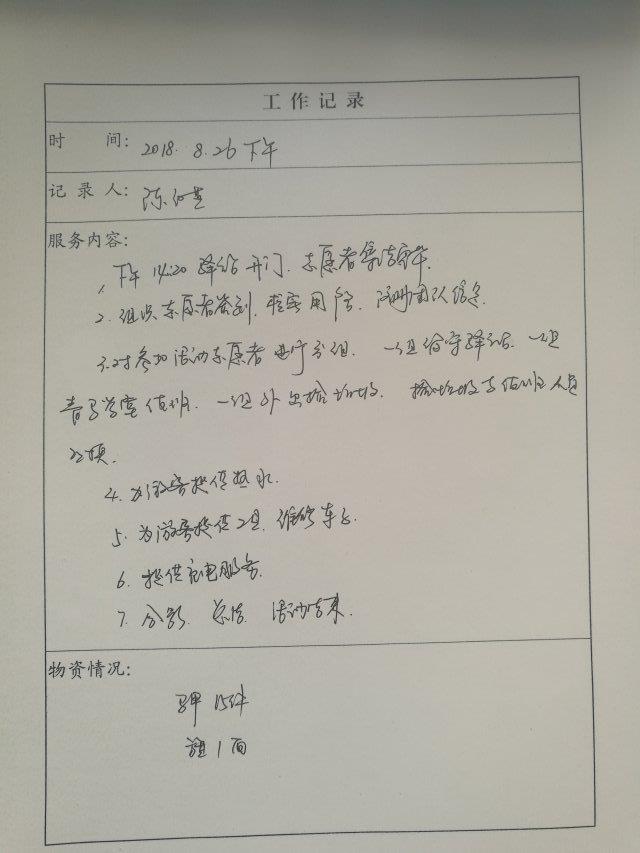 工作记录
时 间: 2018. 8.26 下午
记录人: 陈
服务内容:
1. 下午 14:20 驿站开门. 志愿者集结完毕.
2. 组织志愿者签到, 用, 团队信息.
3. 对参加活动志愿者进行分组. 一组留守驿站. 一组
青鸟学堂值班. 一组外出捡垃圾. 捡垃圾与值班人员
互换.
4. 为游客提供热水.
5. 为游客提供工具, 维修车子.
6. 提供充电服务.
7. 分享. 总结. 活动结束.
物资情况:
马甲 15件
旗 1 面